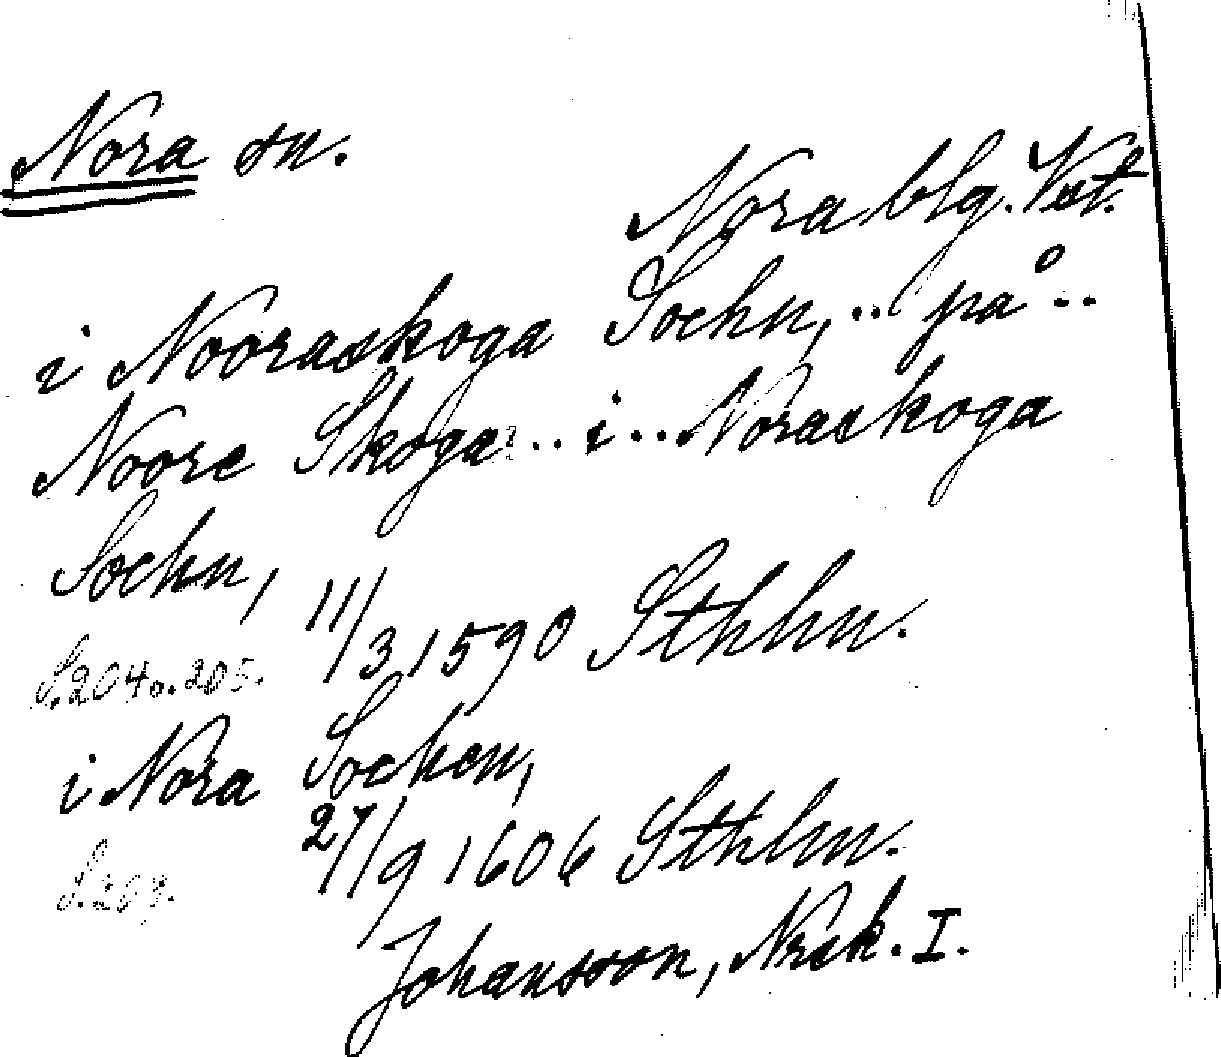 Nora sn.
Nora blg. Vstm.
i Nooraskoga Sochn, .. på ..
Noore Skoga .. i .. Noraskoga
Sochn,
11/3 1590 Sthlm.
S. 204 o. 205.
i Nora Sochen,
27/9 1606 Sthlm.
S. 207.
Johansson, Nrsk. I.